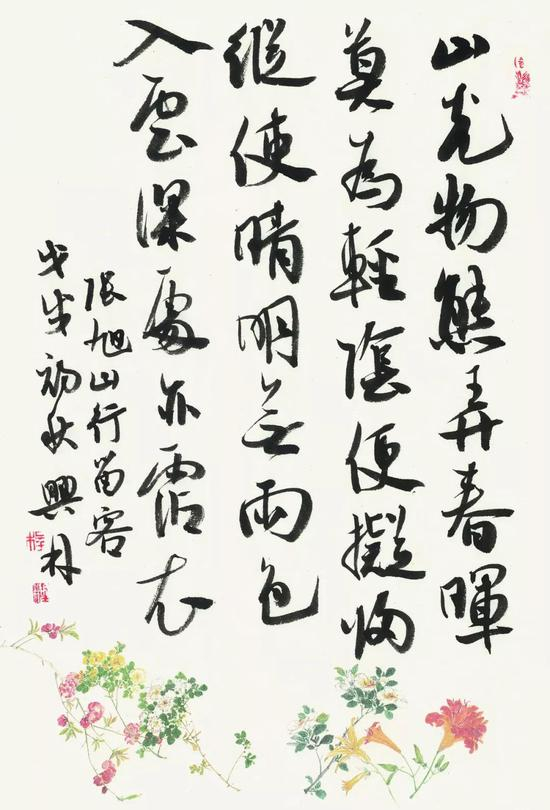 山光物態弄春暉
莫為輕陰便擬歸
縱使晴明無雨色
入雲深處亦霑衣
張旭山行留客
戊戌初秋興